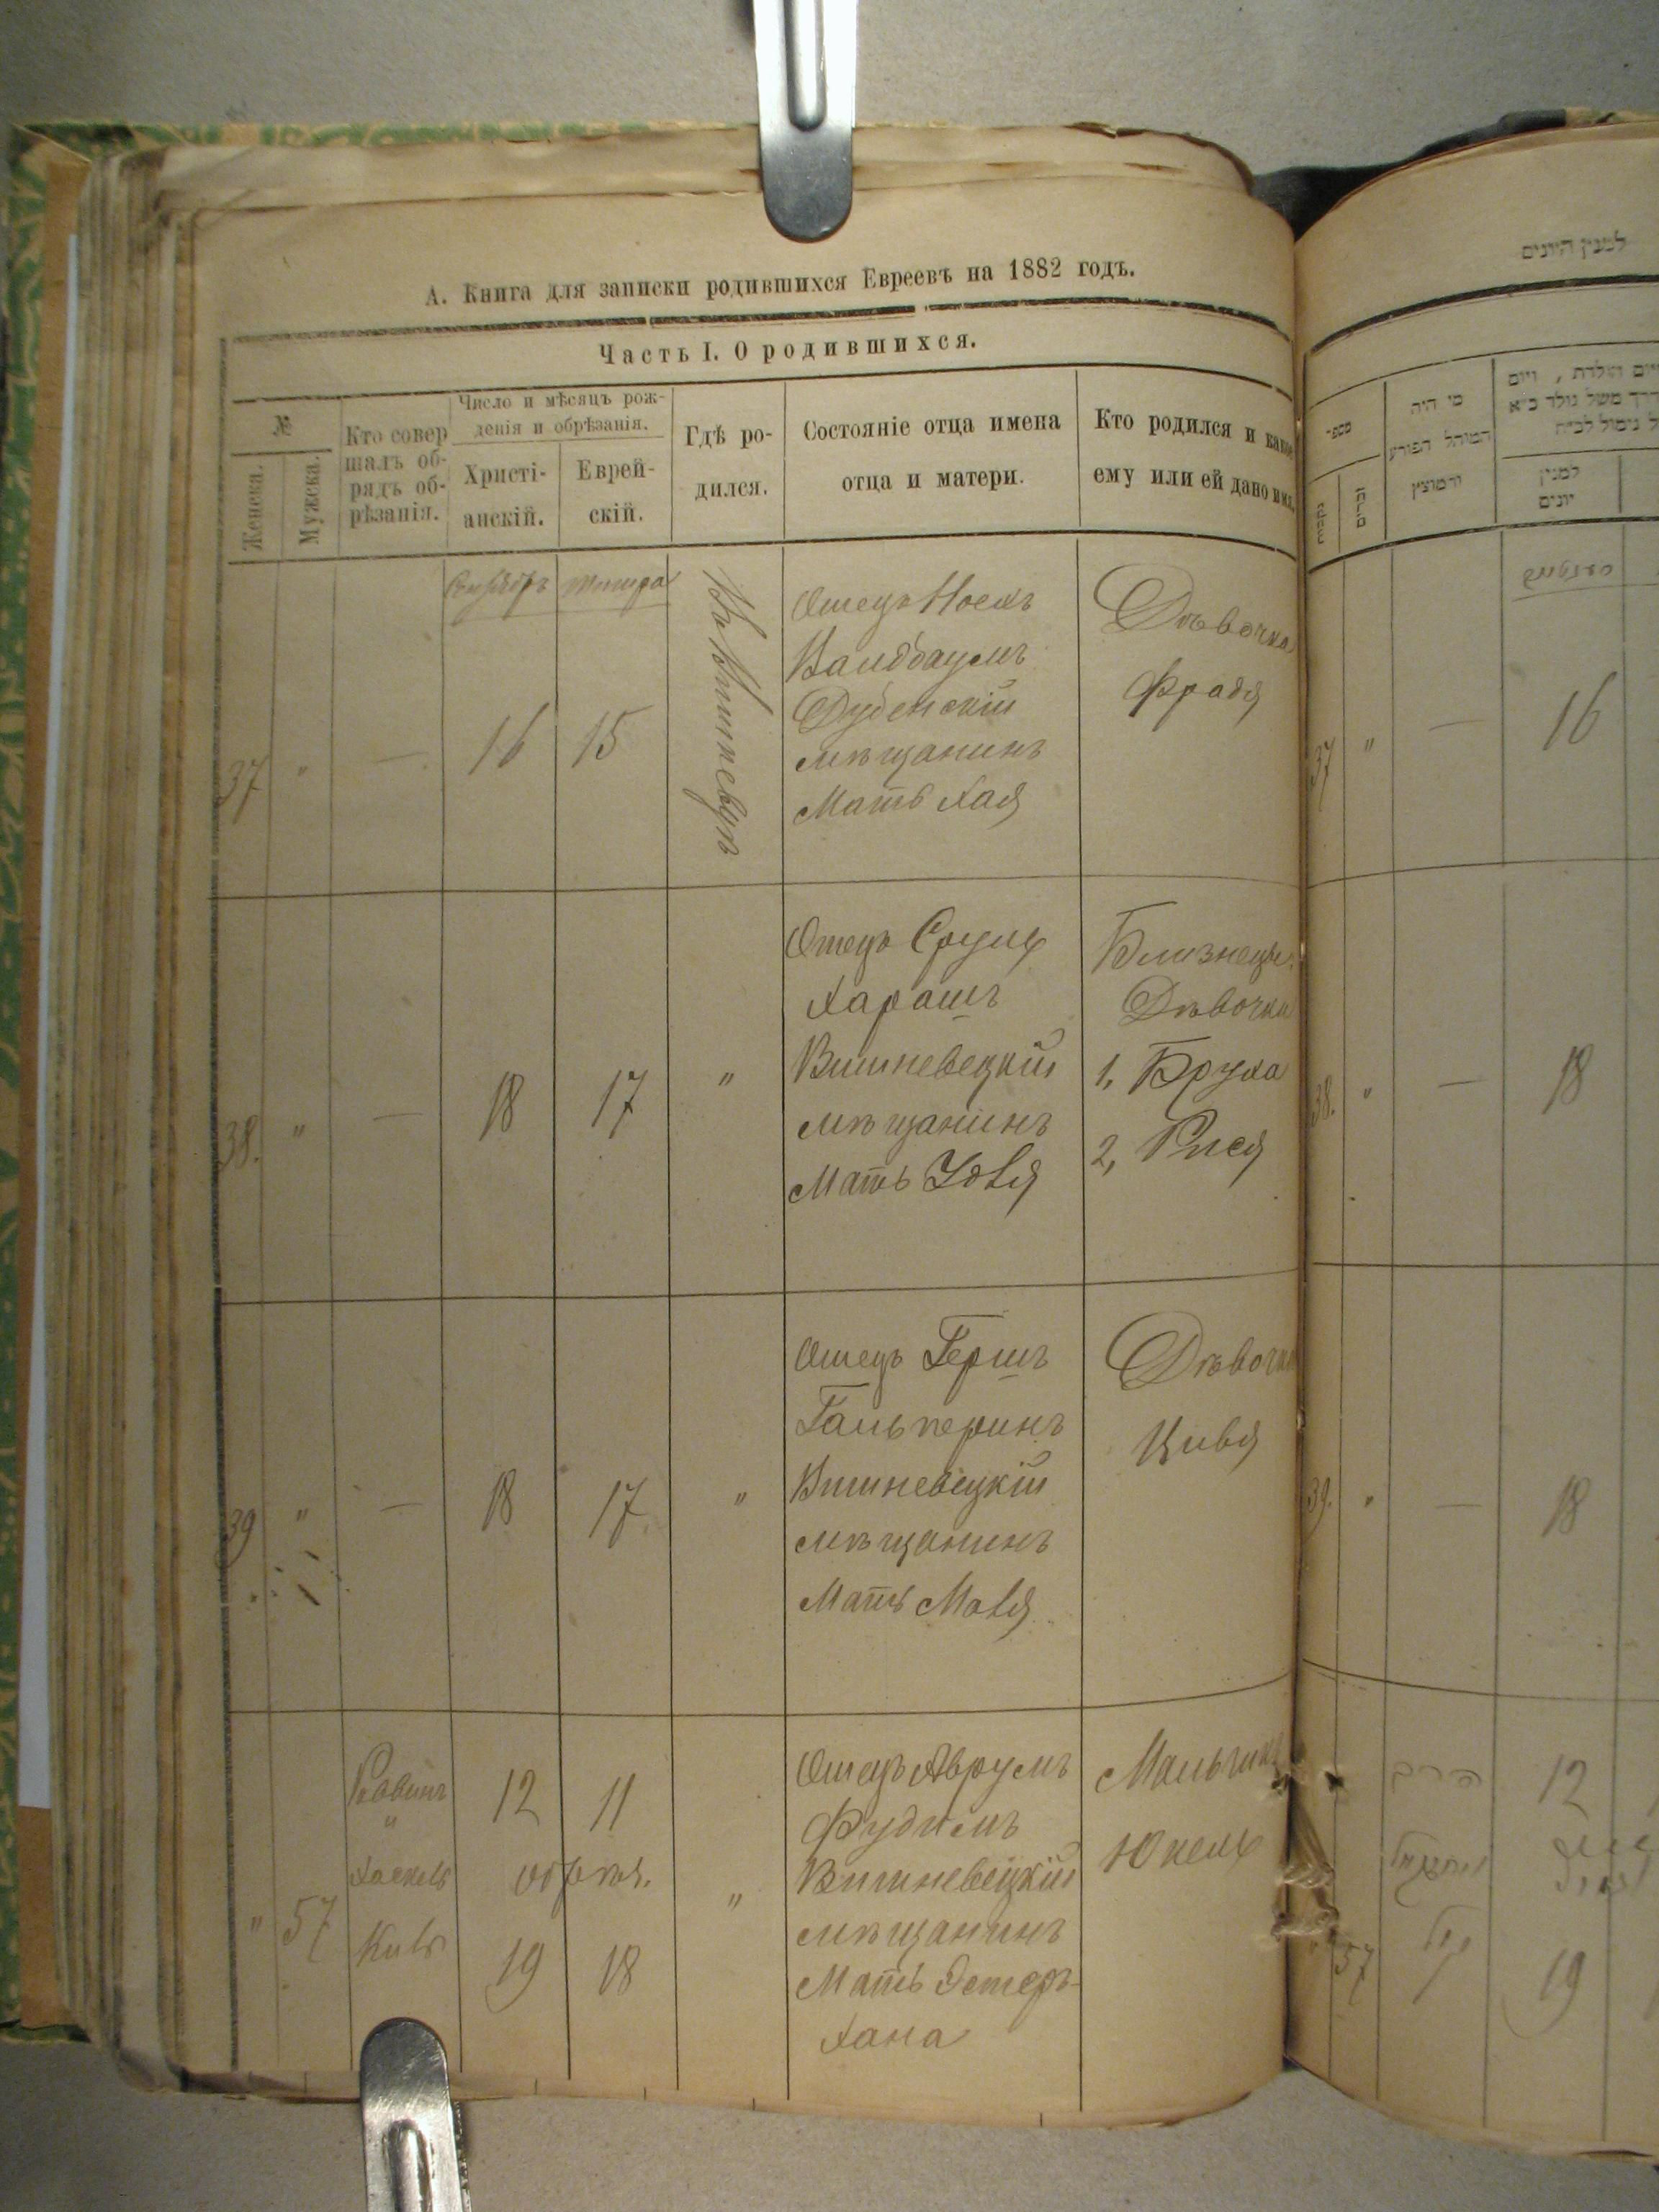 А. Книга для записки родившихся Евреевъ на 1882 годъ.
Часть I. О родившихся.
№
Женска.
Мужска.
Кто совер
шалъ об-
рядъ об-
рѣзанія.
Число и мѣсяцъ рож-
денія и обрѣзанія.
Христі-
анскій.
Еврей-
скій.
Гдѣ ро-
дился.
Состояніе отца имена
отца и матери.
Кто родился и какое
ему или ей дано имя.
Сентябрь
Тишра
37
"
—
16
15
Отецъ Носехъ
Дубенскій
мѣщанинъ
Мать Хая
Дѣвочка
Фрадя
38.
"
—
18
17
"
Отецъ Сруль
Харашъ
Вишневецкій
мѣщанинъ
Мать Удля
Близнецы.
Дѣвочки
1, Бруха
2, Рися
39
"
—
18
17
"
Отецъ Гершъ
Гальперинъ
Вишневецкій
мѣщанинъ
Мать
Дѣвочка
Цивя
"
57
Раввинъ
"
Хаскель
12
11
обрѣз.
19
18
"
Отецъ Аврумъ
Фудимъ
Вишневецкій
мѣщанинъ
Мать Эстеръ-
Хана
Мальчикъ
Юкель
למנין היונים
מספר
נקבות
זכרים
מי היה
המוהל הפורע
והמוצץ
למנין
יונים
37
"
—
16
38.
"
—
18
39.
"
—
18
"
57
הרב
12
19